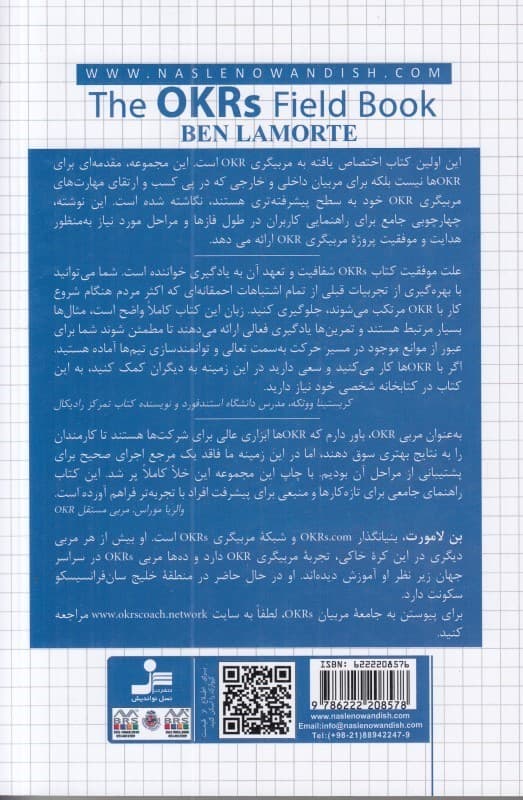 WWW.NASLENOWANDISH.COM
The OKRs Field Book
BEN LAMORTE
این اولین کتاب اختصاص یافته به مربیگری OKR است. این مجموعه، مقدمه‌ای برای
OKRها نیست بلکه برای مربیان داخلی و خارجی که در پی کسب و ارتقای مهارت‌های
مربیگری OKR خود به سطح پیشرفته‌تری هستند، نگاشته شده است. این نوشته،
چهارچوبی جامع برای راهنمایی کاربران در طول فازها و مراحل مورد نیاز به‌منظور
هدایت و موفقیت پروژهٔ مربیگری OKR ارائه می دهد.
علت موفقیت کتاب OKRs شفافیت و تعهد آن به یادگیری خواننده است. شما می‌توانید
با بهره‌گیری از تجربیات قبلی از تمام اشتباهات احمقانه‌ای که اکثر مردم هنگام شروع
کار با OKR مرتکب می‌شوند، جلوگیری کنید. زبان این کتاب کاملاً واضح است، مثال‌ها
بسیار مرتبط هستند و تمرین‌ها یادگیری فعالی ارائه می‌دهند تا مطمئن شوند شما برای
عبور از موانع موجود در مسیر حرکت به‌سمت تعالی و توانمندسازی تیم‌ها آماده هستید.
اگر با OKRها کار می‌کنید و سعی دارید در این زمینه به دیگران کمک کنید، به این
کتاب در کتابخانه شخصی خود نیاز دارید.
کریستینا وودتکه، مدرس دانشگاه استندفورد و نویسنده کتاب تمرکز رادیکال
به‌عنوان مربی OKR، باور دارم که OKRها ابزاری عالی برای شرکت‌ها هستند تا کارمندان
را به نتایج بهتری سوق دهند، اما در این زمینه ما فاقد یک مرجع اجرای صحیح برای
پشتیبانی از مراحل آن بودیم. با چاپ این مجموعه این خلأ کاملاً پر شد. این کتاب
راهنمای جامعی برای تازه‌کارها و منبعی برای پیشرفت افراد با تجربه‌تر فراهم آورده است.
والریا موراس، مربی مستقل OKR
بن لامورت، بنیانگذار OKRs.com و شبکهٔ مربیگری OKRs است. او بیش از هر مربی
دیگری در این کرهٔ خاکی، تجربهٔ مربیگری OKR دارد و ده‌ها مربی OKRs در سراسر
جهان زیر نظر او آموزش دیده‌اند. او در حال حاضر در منطقهٔ خلیج سان‌فرانسیسکو
سکونت دارد.
برای پیوستن به جامعهٔ مربیان OKRs، لطفاً به سایت www.okrscoach.network مراجعه
کنید.
ISBN: 6222208576
9 786222 208578
www.naslenowandish.com
Email:info@naslenowandish.com
Tel:(+98-21)88942247-9
نسل نواندیش
BRS
BRS